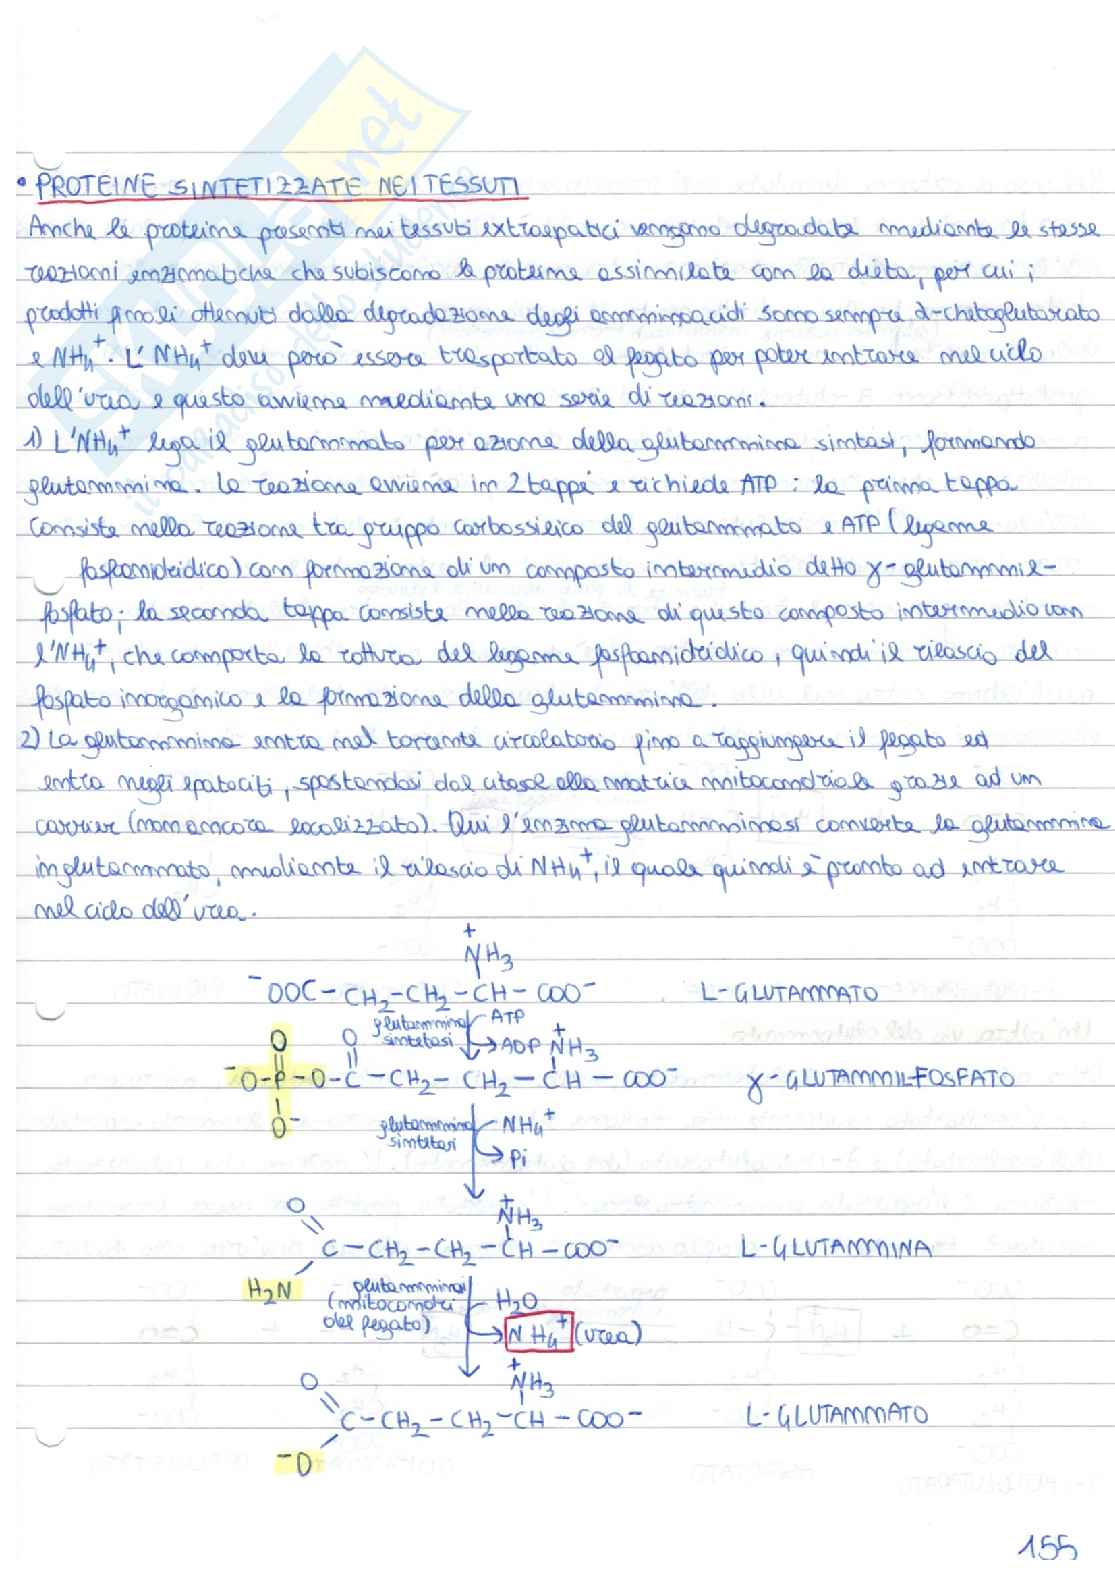 • PROTEINE SINTETIZZATE NEI TESSUTI
Anche le proteine presenti nei tessuti extraepatici vengono degradate mediante le stesse
reazioni enzimatiche che subiscono le proteine assimilate con la dieta, per cui i
prodotti finali ottenuti dalla degradazione degli amminoacidi sono sempre α-chetoglutarato
e NH₄⁺. L'NH₄⁺ deve però essere trasportato al fegato per poter entrare nel ciclo
dell'urea e questo avviene mediante una serie di reazioni.
1) L'NH₄⁺ lega il glutammato per azione della glutammina sintasi, formando
glutammina. La reazione avviene in 2 tappe e richiede ATP: la prima tappa
consiste nella reazione tra gruppo carbossilico del glutammato e ATP (legame
fosfoanidridico) con formazione di un composto intermedio detto γ-glutammil-
fosfato; la seconda tappa consiste nella reazione di questo composto intermedio con
l'NH₄⁺, che comporta la rottura del legame fosfoanidridico, quindi il rilascio del
fosfato inorganico e la formazione della glutammina.
2) La glutammina entra nel torrente circolatorio fino a raggiungere il fegato ed
entra negli epatociti, spostandosi dal citosol alla matrice mitocondriale grazie ad un
carrier (non ancora localizzato). Qui l'enzima glutamminasi converte la glutammina
in glutammato, mediante il rilascio di NH₄⁺, il quale quindi è pronto ad entrare
nel ciclo dell'urea.
⁺NH₃
⁻OOC-CH₂-CH₂-CH-COO⁻ L-GLUTAMMATO
glutammina sintetasi ATP
ADP ⁺NH₃
O O
⁻O-P-O-C-CH₂-CH₂-CH-COO⁻ γ-GLUTAMMILFOSFATO
O⁻
glutammina sintetasi NH₄⁺
Pi
O ⁺NH₃
C-CH₂-CH₂-CH-COO⁻ L-GLUTAMMINA
H₂N
glutamminasi
(mitocondri H₂O
del fegato) NH₄⁺ (urea)
O ⁺NH₃
C-CH₂-CH₂-CH-COO⁻ L-GLUTAMMATO
⁻O
155